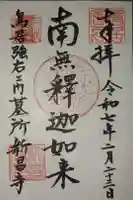 奉拝
令和七年二月二十三日
南無釋迦如来
鳥居強右エ門墓所新昌寺